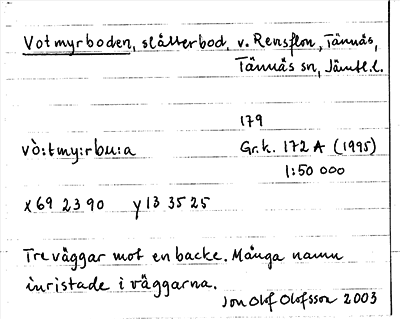 Votmyrboden, slåtterbod, v. Rensflon, Tännäs,
Tännäs sn, Jämtl. l.
179
vò:tmy:rbu:a Gr.k. 172 A (1995)
1:50 000
x 69 23 90 y 13 35 25
Tre väggar mot en backe. Många namn
inristade i väggarna.
Jon Olof Olofsson 2003